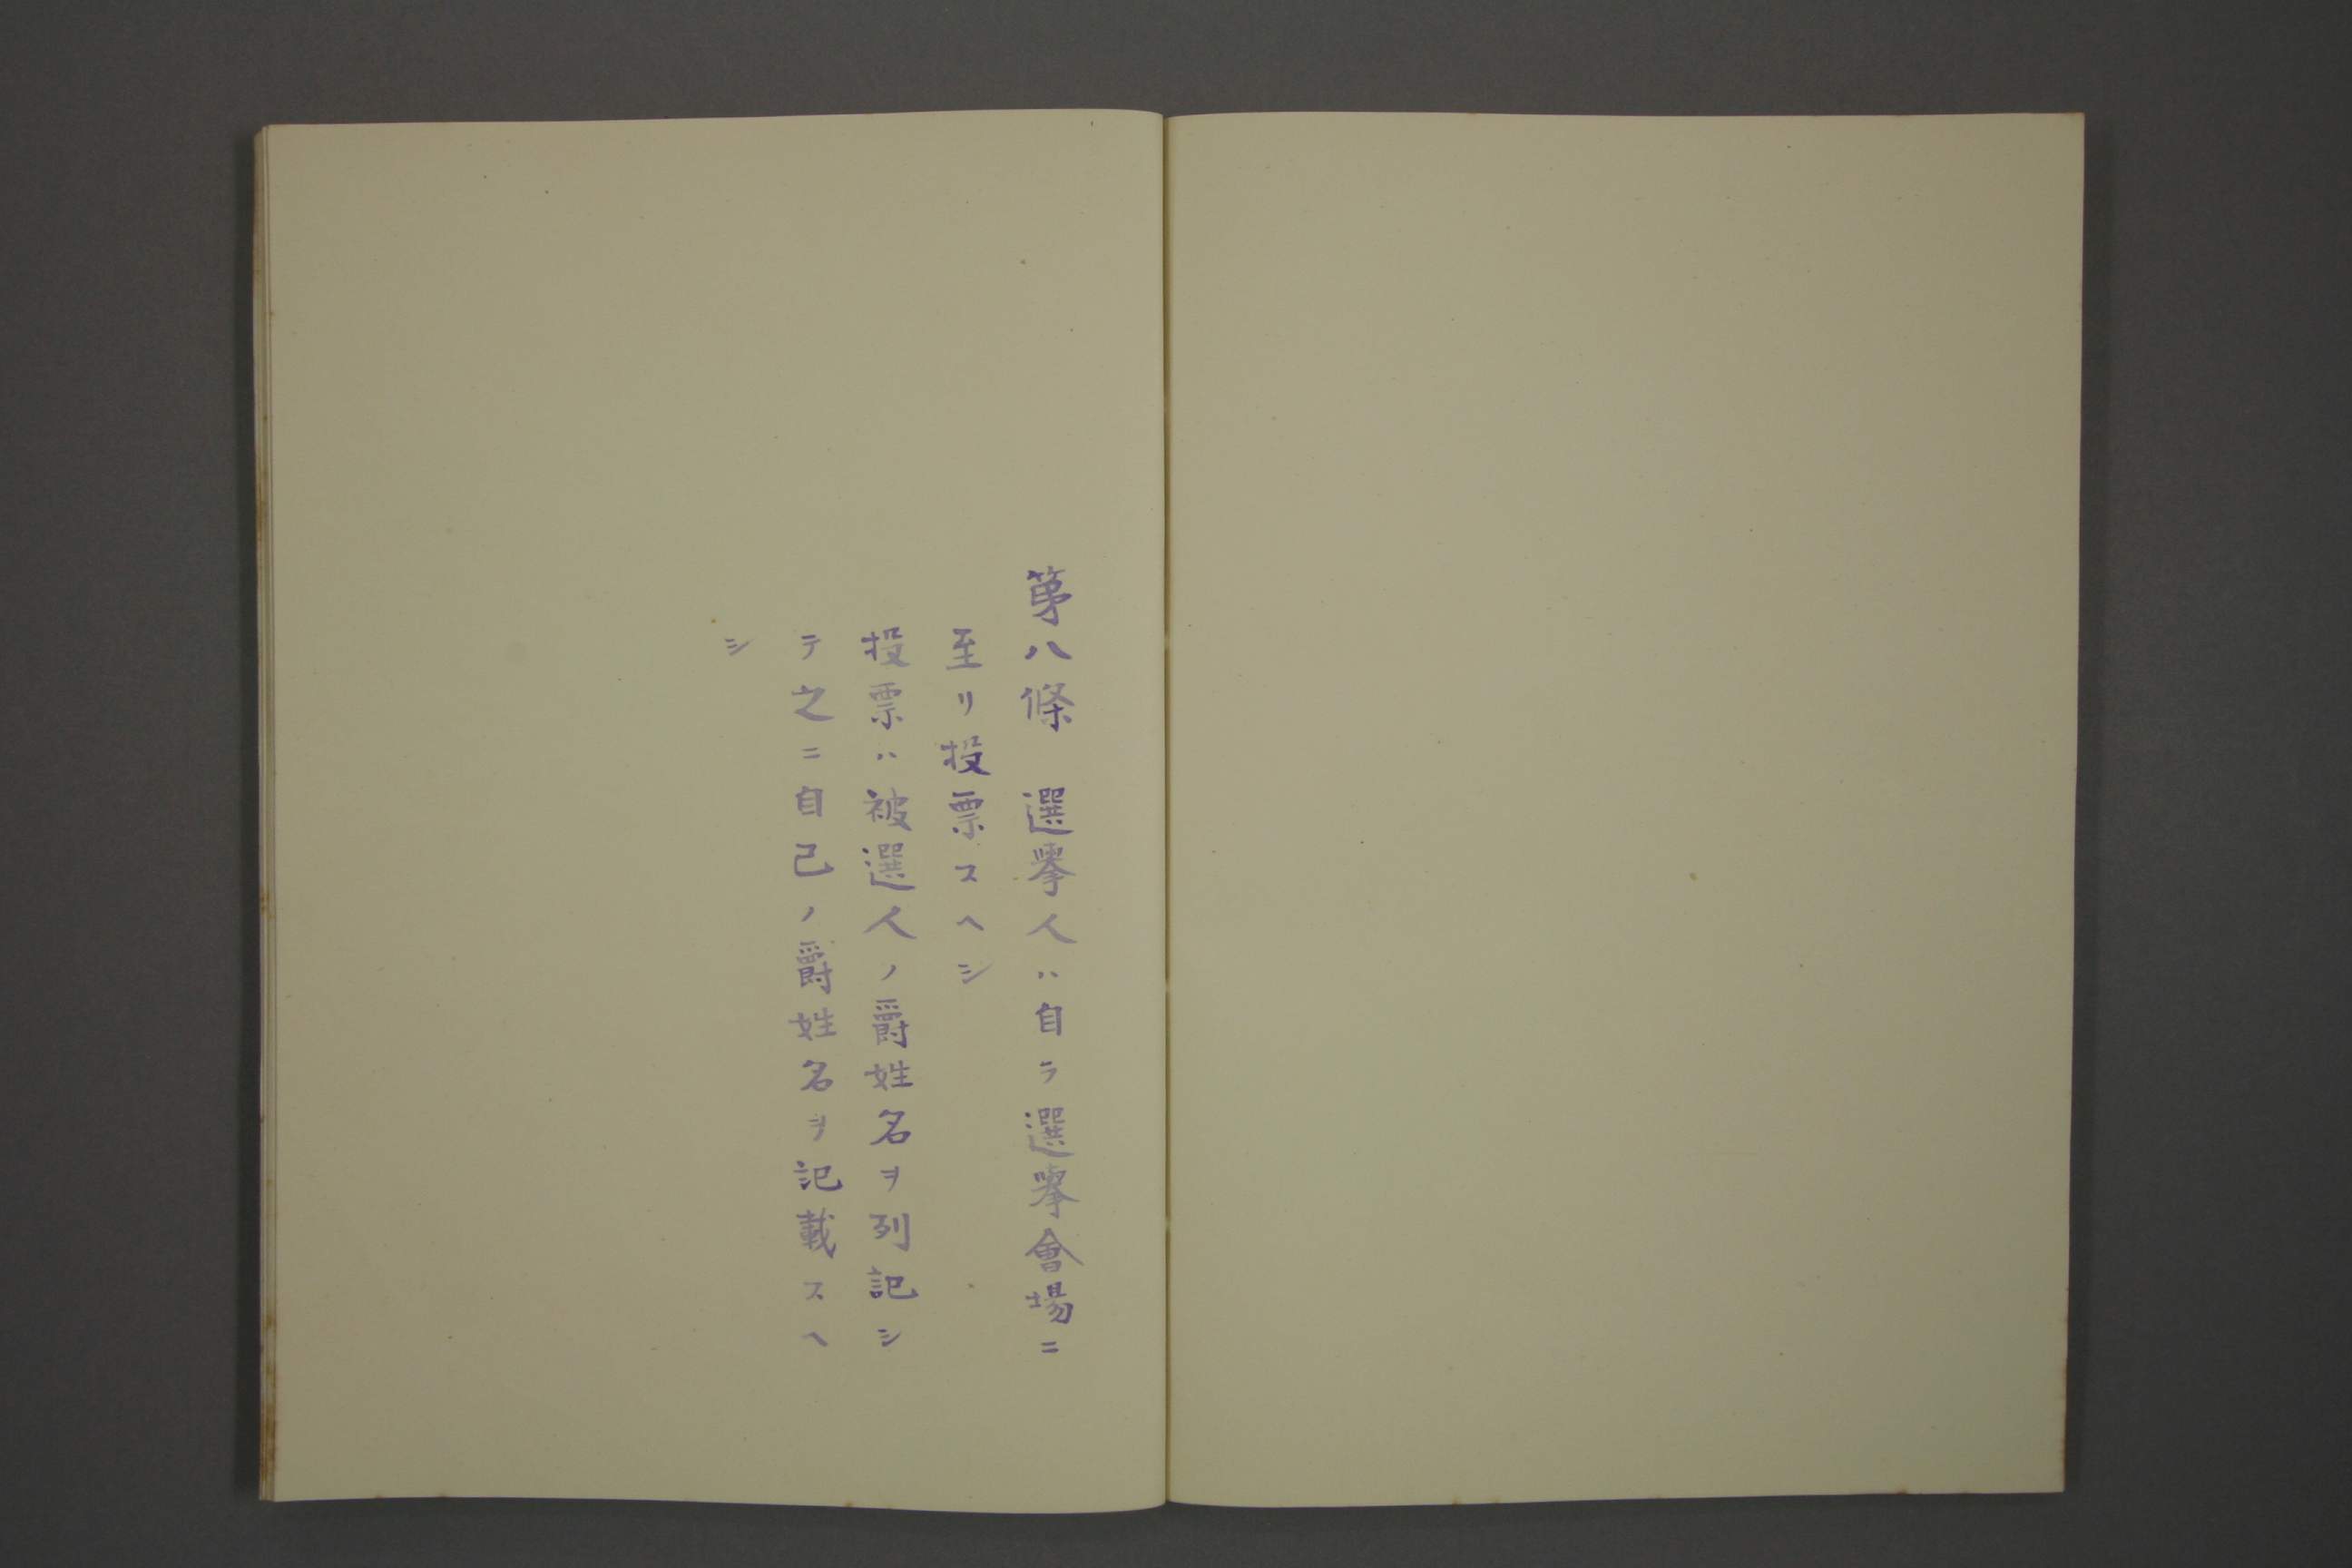 第八條　選擧人ハ自ラ選擧會場ニ
至リ投票スヘシ
投票ハ被選人ノ爵姓名ヲ列記シ
テ之ニ自己ノ爵姓名ヲ記載スヘ
シ